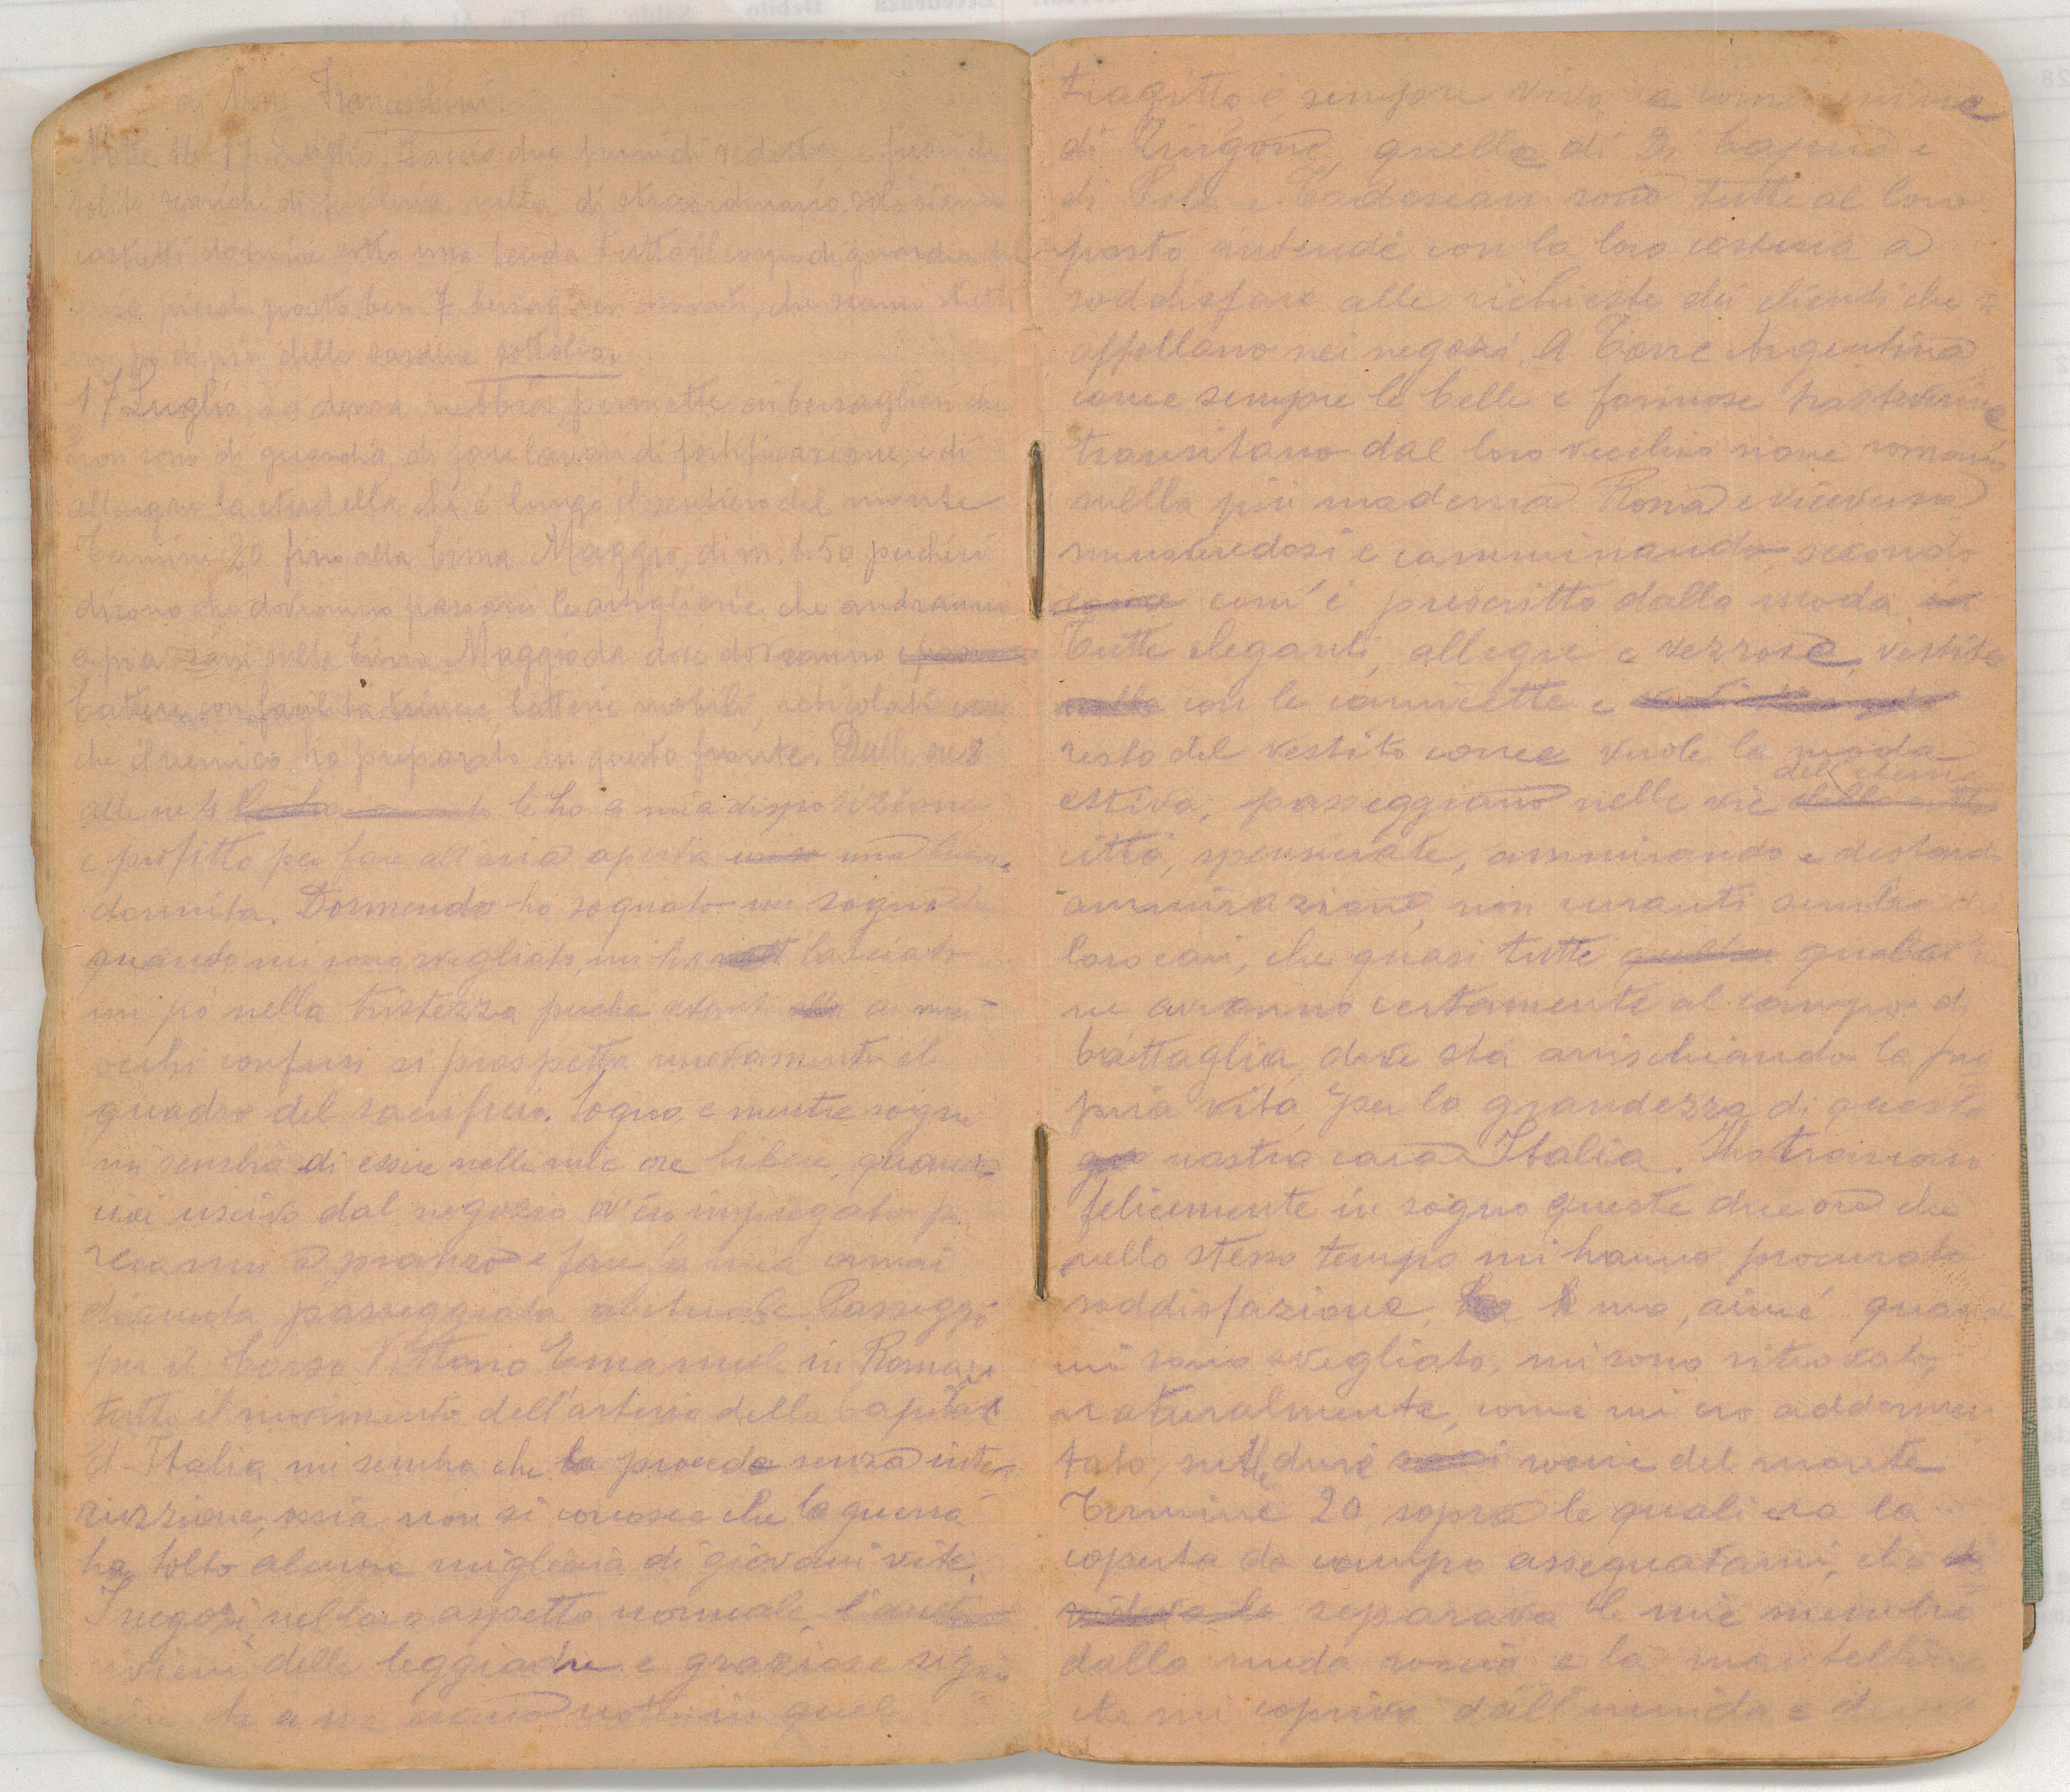 di Franceschini.
Notte 16-17 Luglio, due turni di vedetta, e fuori che
solite scariche di fucileria nulla di straordinario. Solo siamo
costretti dormire sotto una tenda tutto il corpo di guardia del
posto, ben 7 bersaglieri armati, che siamo stretti
un po di più delle sardine sottolio.
17 Luglio, La densa nebbia, permette ai bersaglieri che
non sono di guardia, di fare lavori di fortificazione, e di
allargare la stradella che è lungo il sentiero del monte
Termine 20 fino alla Cima Maggio, di m. 1.50 perchè ci
dicono che dovranno passare le artiglierie che andranno
a piazzarsi sulla Cima Maggio da dove dovranno
battere con facilità, trincee, batterie mobili, reticolati ecc
che il nemico ha preparato in questo fronte. Dalle ore 2
alle ore 4 le ho a mia disposizione
e profitto per fare all'aria aperta una buona
dormita. Dormendo ho sognato un sogno che
quando mi sono svegliato, mi ha lasciato
un pò nella tristezza perchè avanti ai miei
occhi confusi si prospetta nuovamente il
quadro del sacrificio. Sogno, e mentre sogno
mi sembra di essere nelle mie ore libere, quando
uscivo dal negozio ov'ero impregato per
recarmi a pranzo e fare la mia ormai
divenuta passeggiata abituale. Passeggio
per il Corso Vittorio Emanuele in Roma,
tutto il movimento dell'arteria della Capitale
d'Italia mi sembra che la proceda senza inter
ruzzione, ossia non si conosce che la guerra
ha tolto alcune migliaia di giovani vite.
I negozi, nel loro aspetto normale,
delle leggiadre e graziose signo
che a me erano note in quel
tragitto, è sempre vivo
di Ringone, quelle di Di Capua e
di Pola e Todescan sono tutte al loro
posto, intende con la loro cortesia a
soddisfare alle richieste dei clienti che si
affollano nei negozi. A Torre Argentina
come sempre le belle e formose trasteverine
transitano dal loro vecchio rione romano
nella più moderna Roma e viceversa
muovendosi e camminando, secondo
come com'è prescritto dalla moda
Tutte eleganti, allegre e vezzose, vestite
con le camicette e
resto del vestito come vuole la moda
estiva, passeggiano nelle vie dell'eterna
città, spensierate, ammirando e destando
ammirazione, non curanti sembra dei
loro cari, che quasi tutte qualcu
ne avranno certamente al campo di
battaglia, dove stà arrischiando la pro
pria vita per la grandezza di questa
nostra cara Italia. Ho trascorso
felicemente in sogno queste due ore che
nello stesso tempo mi hanno procurato
soddisfazione, ma, aimé quando
mi sono svegliato, mi sono ritrovato,
naturalmente, come mi ero addormen
tato, sulle dure roccie del monte
Termine 20, sopra le quali era la
coperta da campo assegnatami, che
separava le mie membra
dalla nuda roccia e la mantellina
che mi copriva dall'umido e